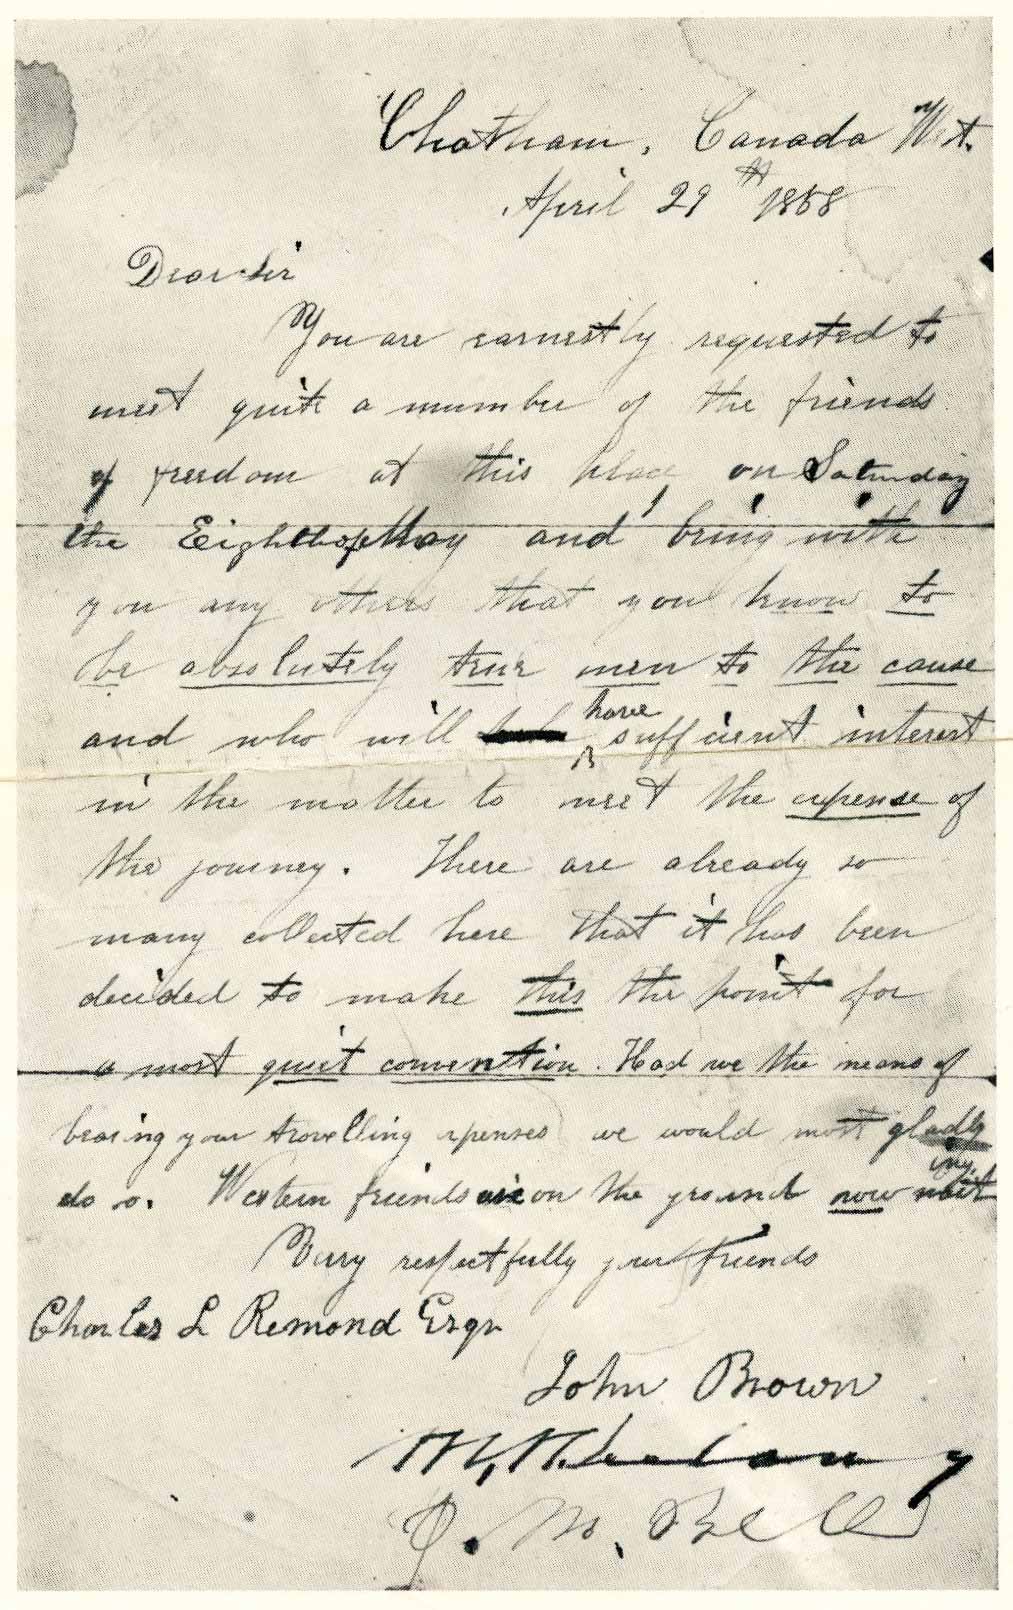 Chatham, Canada West.
April 29th 1858
Dear Sir
You are earnestly requested to
meet quite a number of the friends
of freedom at this place on Saturday
the Eighth of May and bring with
you any others that you know to
be absolutely true men to the cause
and who will have sufficient interest
in the matter to meet the expense of
the journey. There are already so
many collected here that it has been
decided to make this the point for
a most quiet convention. Had we the means of
bearing your travelling expenses we would most gladly
do so. Western friends are on the ground now waiting.
Very respectfully your friends
Charles L Remond Esqr
John Brown
M. R. Delany
J. M. Bell